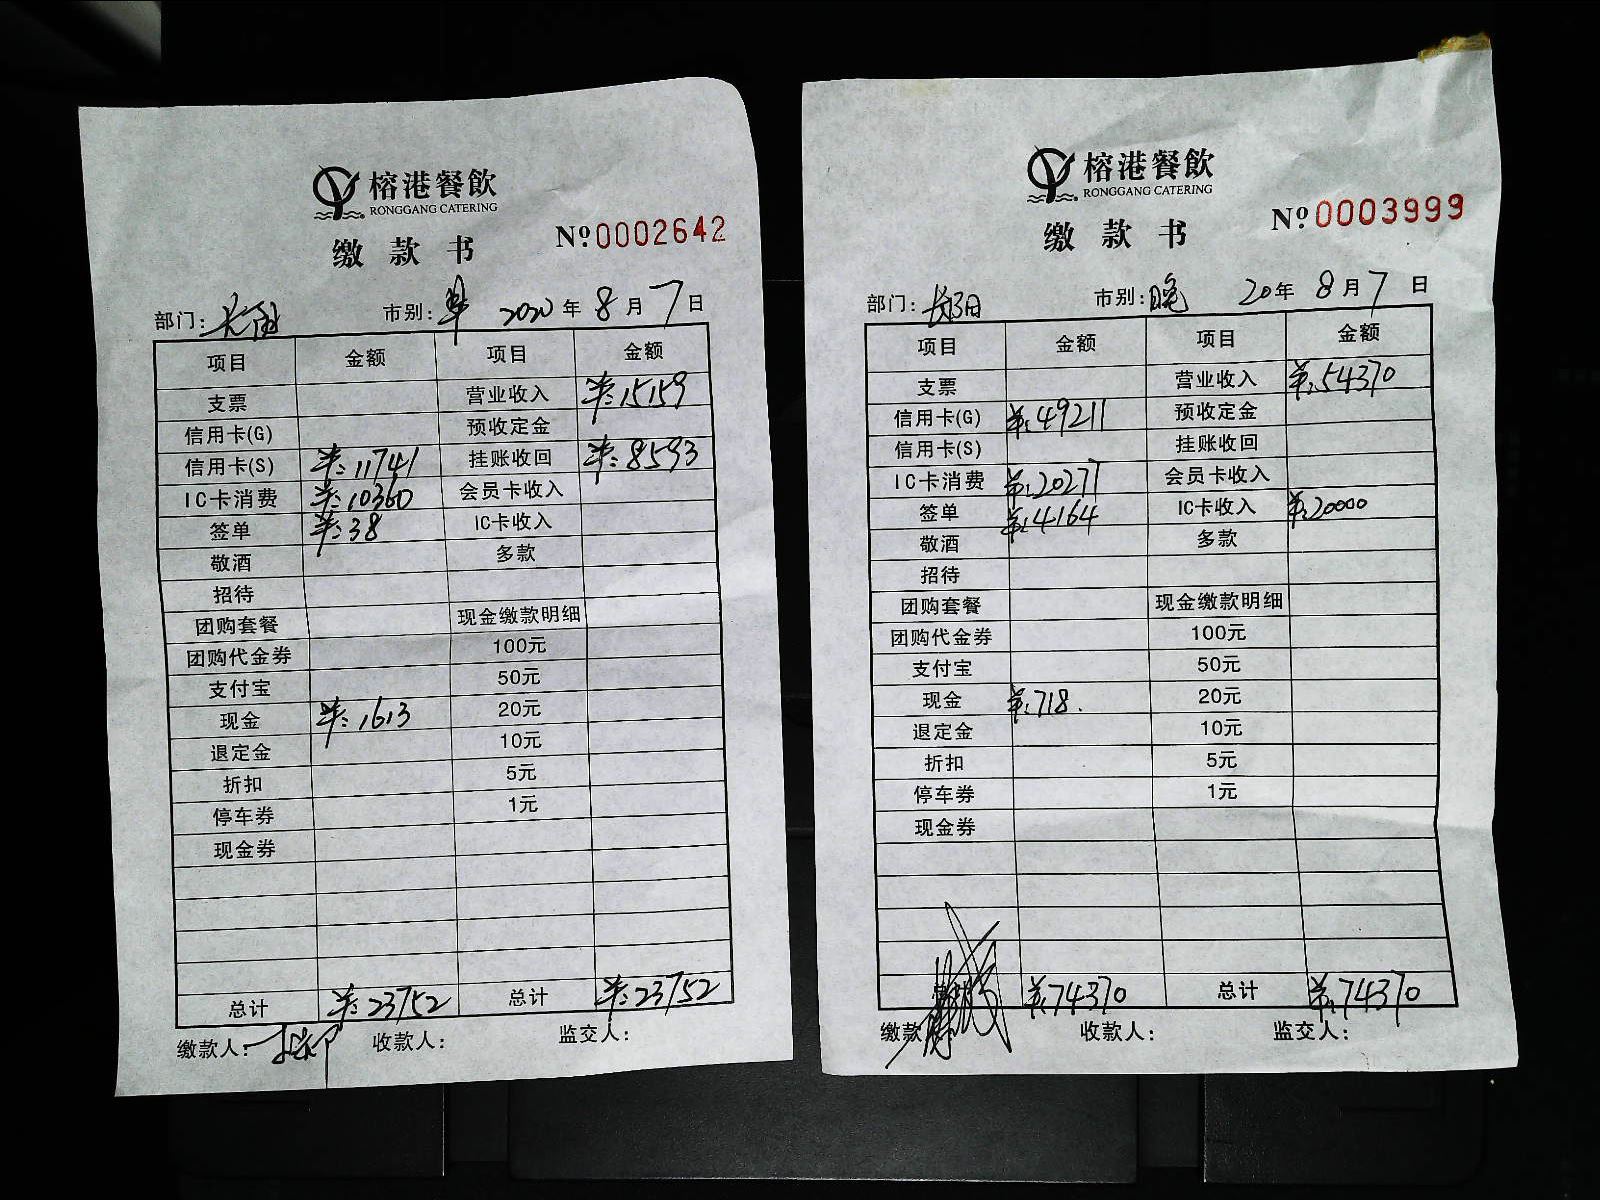 榕港餐飲
RONGGANG CATERING
缴款书
Nº 0002642
部门: 市别: 早 2020年8月7日
项目 金额 项目 金额
支票 营业收入 ¥:15159
信用卡(G) 预收定金
信用卡(S) ¥:11741 挂账收回 ¥:8593
IC卡消费 ¥:10360 会员卡收入
签单 ¥:38 IC卡收入
敬酒 多款
招待
团购套餐 现金缴款明细
团购代金券 100元
支付宝 50元
现金 ¥:1613 20元
退定金 10元
折扣 5元
停车券 1元
现金券
总计 ¥:23752 总计 ¥:23752
缴款人: 收款人: 监交人:
榕港餐飲
RONGGANG CATERING
缴款书
Nº 0003999
部门: 市别: 晚 20年8月7日
项目 金额 项目 金额
支票 营业收入 ¥:54370
信用卡(G) ¥:49211 预收定金
信用卡(S) 挂账收回
IC卡消费 ¥:20277 会员卡收入
签单 ¥:4164 IC卡收入 ¥:20000
敬酒 多款
招待
团购套餐 现金缴款明细
团购代金券 100元
支付宝 50元
现金 ¥:718. 20元
退定金 10元
折扣 5元
停车券 1元
现金券
总计 ¥:74370 总计 ¥:74370
缴款 收款人: 监交人: